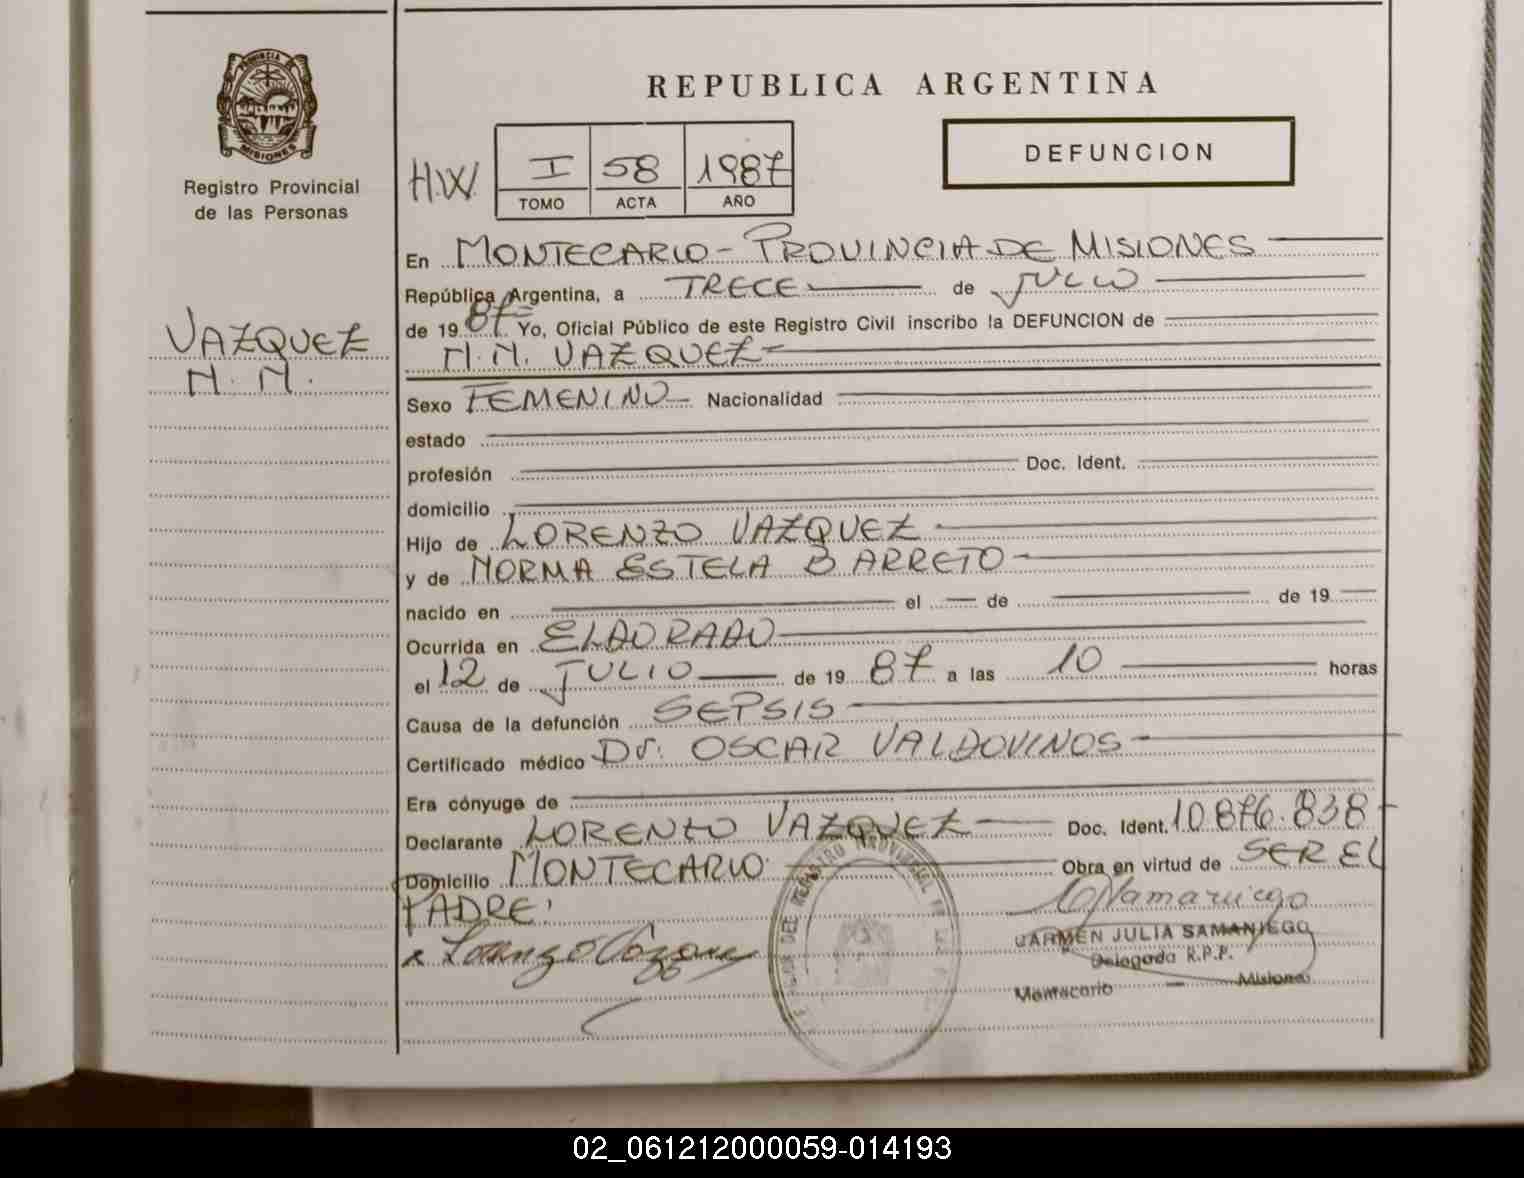 PROVINCIA DE
MISIONES
Registro Provincial
de las Personas
VAZQUEZ
N. N.
REPUBLICA ARGENTINA
H.W. I 58 1987
TOMO ACTA AÑO
DEFUNCION
En MONTECARLO - PROVINCIA DE MISIONES
República Argentina, a TRECE de JULIO
de 19 87 Yo, Oficial Público de este Registro Civil inscribo la DEFUNCION de
N. N. VAZQUEZ
Sexo FEMENINO Nacionalidad
estado
profesión Doc. Ident.
domicilio
Hijo de LORENZO VAZQUEZ
y de NORMA ESTELA BARRETO
nacido en el de de 19
Ocurrida en ELDORADO
el 12 de JULIO de 19 87 a las 10 horas
Causa de la defunción SEPSIS
Certificado médico Dr. OSCAR VALDOVINOS
Era cónyuge de
Declarante LORENZO VAZQUEZ Doc. Ident. 10.876.838
Domicilio MONTECARLO Obra en virtud de SER EL
PADRE.
CARMEN JULIA SAMANIEGO
Delegada R.P.P.
Montecarlo - Misiones
02_061212000059-014193